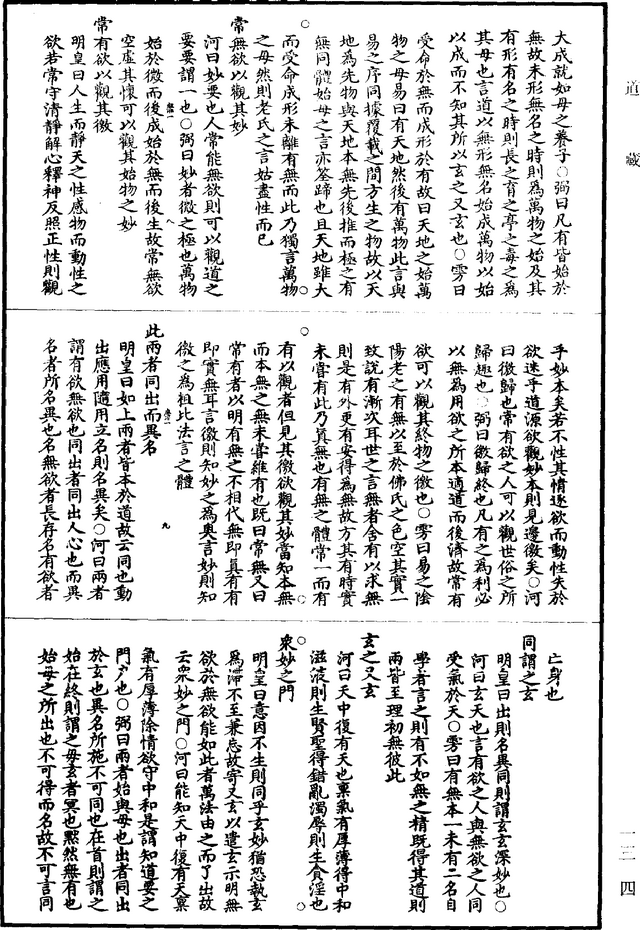 道藏
一三 四
大成就如母之養子○弼曰凡有皆始於
無故未形無名之時則為萬物之始及其
有形有名之時則長之育之亭之毒之為
其母也言道以無形無名始成萬物以始
以成而不知其所以玄之又玄也○雱曰
受命於無而成形於有故曰天地之始萬
物之母易曰有天地然後有萬物此言與
易之序同據覆載之間方生之物故以天
地為先物與天地本無先後推而極之有
無同體始母之言亦筌蹄也且天地雖大
而受命成形未離有無而此乃獨言萬物
之母然則老氏之言姑盡性而已
常無欲以觀其妙
河曰妙要也人常能無欲則可以觀道之
要要謂一也○弼曰妙者微之極也萬物
始於微而後成始於無而後生故常無欲
空虛其懷可以觀其始物之妙
常有欲以觀其徼
明皇曰人生而靜天之性感物而動性之
欲若常守清靜解心釋神反照正性則觀
乎妙本矣若不性其情逐欲而動性失於
欲迷乎道源欲觀妙本則見邊徼矣○河
曰徼歸也常有欲之人可以觀世俗之所
歸趣也○弼曰徼歸終也凡有之為利必
以無為用欲之所本適道而後濟故常有
欲可以觀其終物之徼也○雱曰易之陰
陽老之有無以至於佛氏之色空其實一
致說有漸次耳世之言無者舍有以求無
則是有外更有安得為無故方其有時實
未嘗有此乃真無也有無之體常一而有
有以觀者但見其徼欲觀其妙當知本無
而本無之無未嘗離有也既曰常無又曰
常有者以明有無之不相代無即真有有
即實無耳言徼則知妙之為奧言妙則知
徼之為粗此法言之體
此兩者同出而異名
明皇曰如上兩者皆本於道故云同也動
出應用隨用立名則名異矣○河曰兩者
謂有欲無欲也同出者同出人心也而異
名者所名異也名無欲者長存名有欲者
亡身也
同謂之玄
明皇曰出則名異同則謂玄玄深妙也○
河曰玄天也言有欲之人與無欲之人同
受氣於天○雱曰有無本一未有二名自
學者言之則有不如無之精既得其道則
兩皆至理初無彼此
玄之又玄
河曰天中復有天也稟氣有厚薄得中和
滋液則生賢聖得錯亂濁辱則生貪淫也
眾妙之門
明皇曰意因不生則同乎玄妙猶恐執玄
為滯不至兼忘故寄又玄以遣玄示明無
欲於無欲能如此者萬法由之而了出故
云眾妙之門○河曰能知天中復有天稟
氣有厚薄除情欲守中和是謂知道要之
門戶也○弼曰兩者始與母也出者同出
於玄也異名所施不可同也在首則謂之
始在終則謂之母玄者冥也默然無有也
始母之所出也不可得而名故不可言同